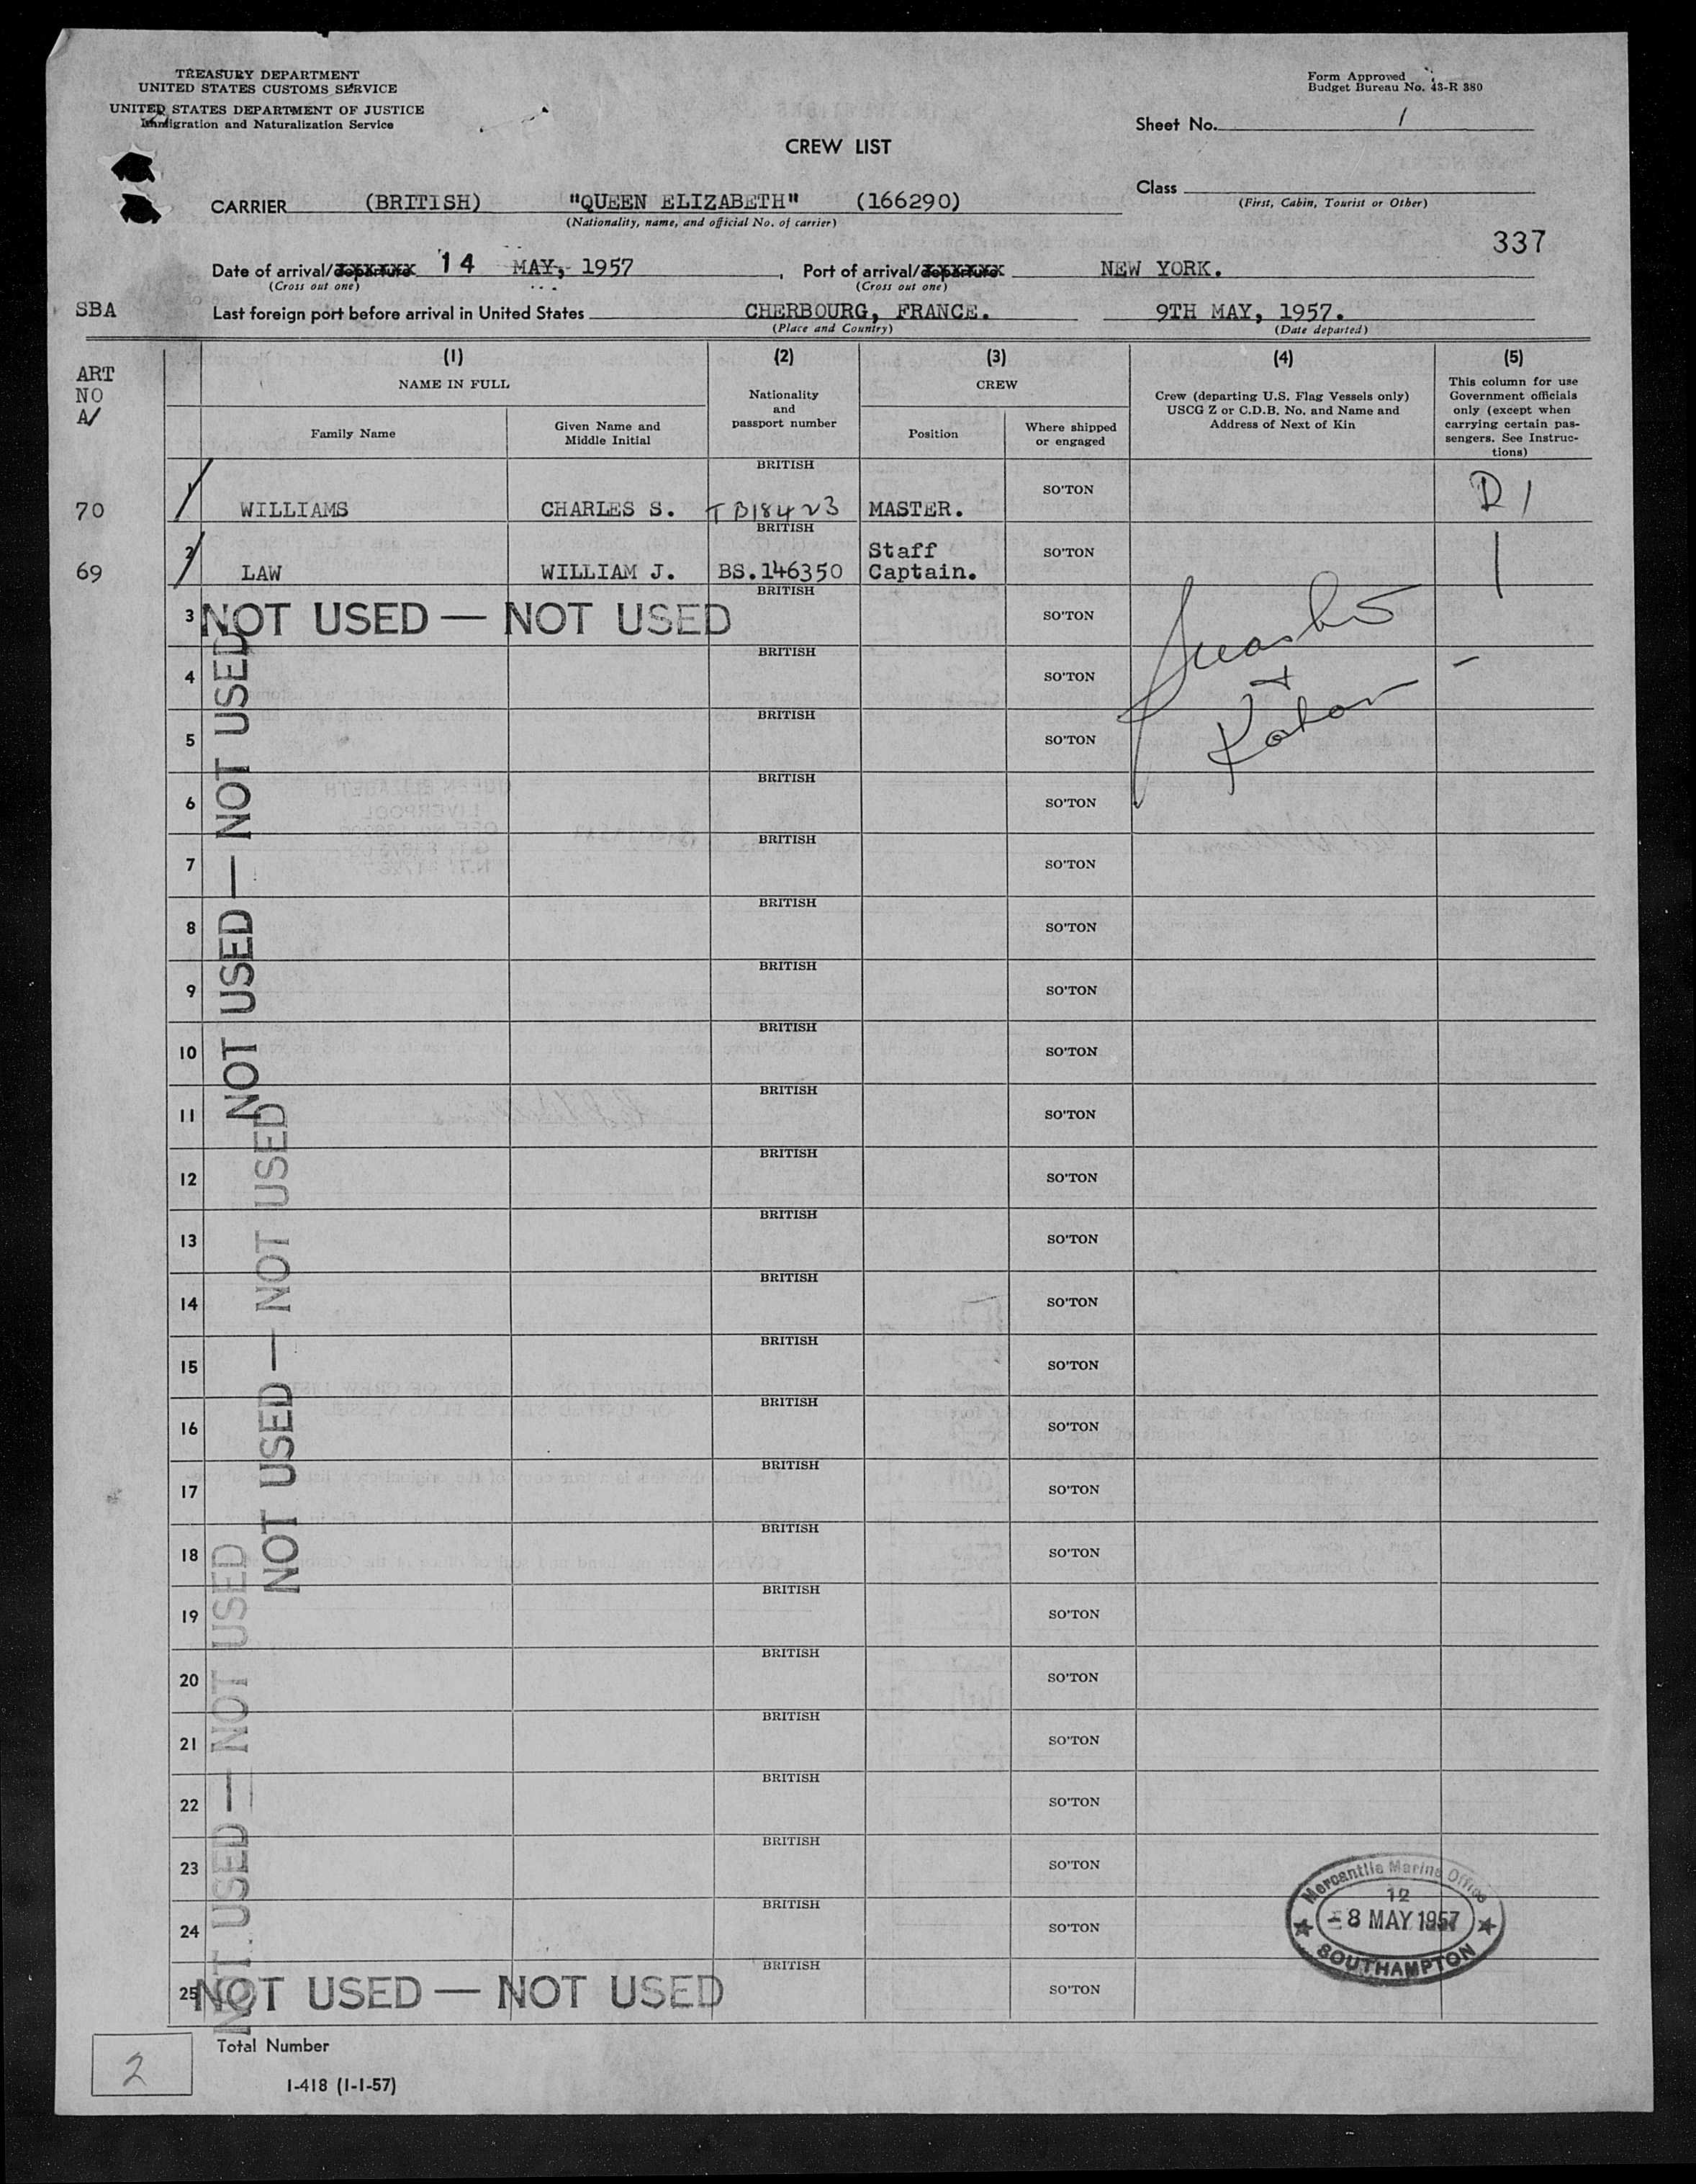 TREASURY DEPARTMENT
UNITED STATES CUSTOMS SERVICE
UNITED STATES DEPARTMENT OF JUSTICE
Immigration and Naturalization Service
Form Approved
Budget Bureau No. 43-R 380
Sheet No. 1
CREW LIST
Class
(First, Cabin, Tourist or Other)
CARRIER (BRITISH) "QUEEN ELIZABETH" (166290)
(Nationality, name, and official No. of carrier)
337
Date of arrival/departure 14 MAY, 1957, Port of arrival/departure NEW YORK.
(Cross out one) (Cross out one)
SBA Last foreign port before arrival in United States CHERBOURG, FRANCE. 9TH MAY, 1957.
(Place and Country) (Date departed)
ART
NO
A/
(1) (2) (3) (4) (5)
NAME IN FULL
Family Name
Given Name and
Middle Initial
Nationality
and
passport number
CREW
Position
Where shipped
or engaged
Crew (departing U.S. Flag Vessels only)
USCG Z or C.D.B. No. and Name and
Address of Next of Kin
This column for use
Government officials
only (except when
carrying certain pas-
sengers. See Instruc-
tions)
BRITISH
70 1 WILLIAMS CHARLES S. TB18423 MASTER. SO'TON D1
BRITISH
69 2 LAW WILLIAM J. BS.146350 Staff Captain. SO'TON
BRITISH
3 NOT USED — NOT USED SO'TON
BRITISH
4 SO'TON
BRITISH
5 SO'TON
BRITISH
6 SO'TON
BRITISH
7 SO'TON
BRITISH
8 SO'TON
BRITISH
9 SO'TON
BRITISH
10 SO'TON
BRITISH
11 SO'TON
BRITISH
12 SO'TON
BRITISH
13 SO'TON
BRITISH
14 SO'TON
BRITISH
15 SO'TON
BRITISH
16 SO'TON
BRITISH
17 SO'TON
BRITISH
18 SO'TON
BRITISH
19 SO'TON
BRITISH
20 SO'TON
BRITISH
21 SO'TON
BRITISH
22 SO'TON
BRITISH
23 SO'TON
BRITISH
24 SO'TON
BRITISH
25 NOT USED — NOT USED SO'TON
NOT USED — NOT USED
NOT USED — NOT USED
NOT USED — NOT USED
Mercantile Marine Office
12
-8 MAY 1957
SOUTHAMPTON
2 Total Number
I-418 (1-1-57)